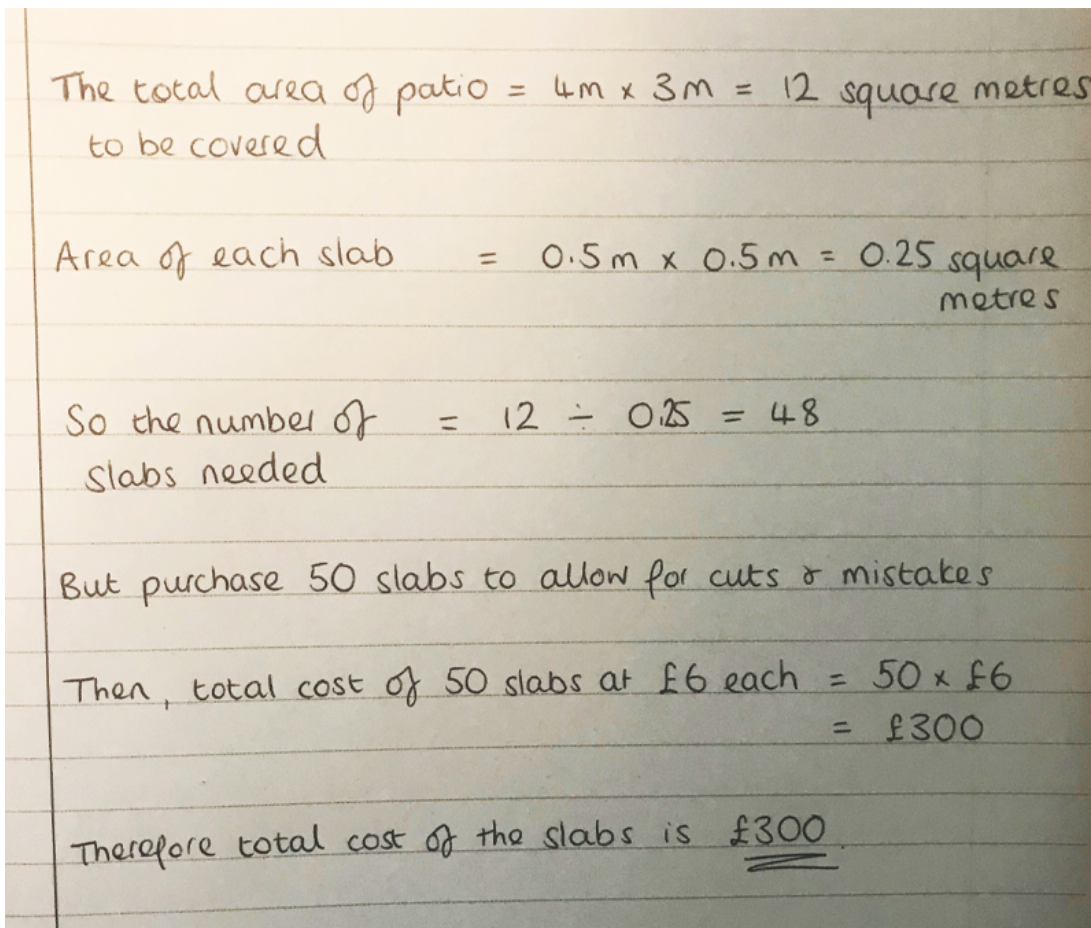 The total area of patio = 4m x 3m = 12 square metres
to be covered
Area of each slab = 0.5m x 0.5m = 0.25 square
metres
So the number of = 12 ÷ 0.25 = 48
slabs needed
But purchase 50 slabs to allow for cuts & mistakes
Then, total cost of 50 slabs at £6 each = 50 x £6
= £300
Therefore total cost of the slabs is £300.